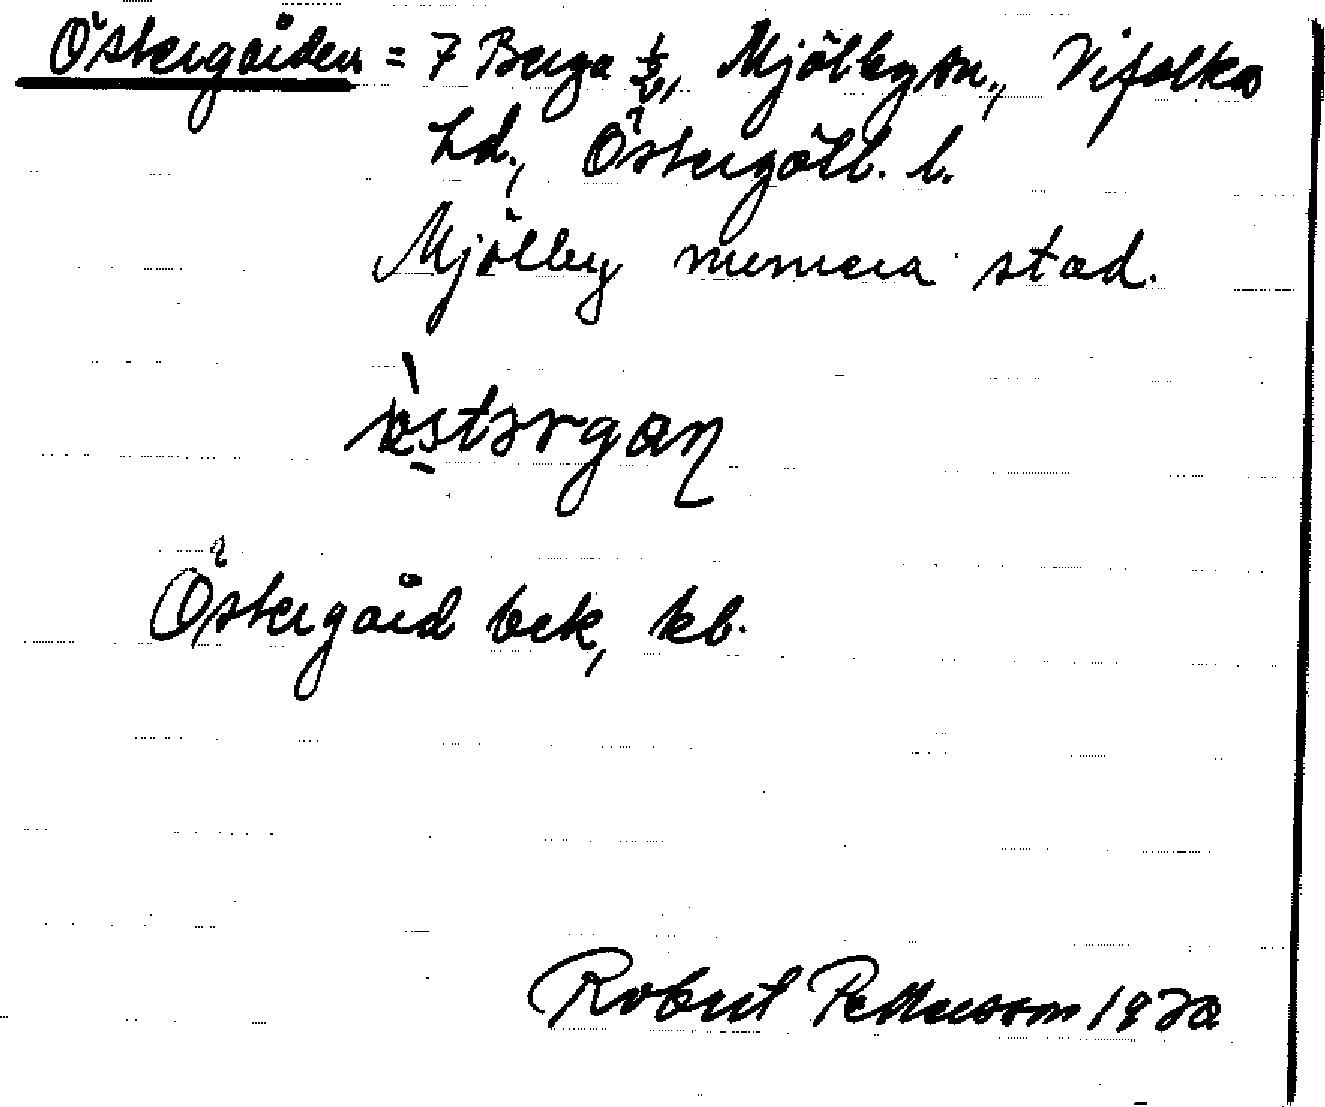 Östergården = 7 Berga ½, Mjölby sn., Vifolka
hd., Östergötl. l.
Mjölby numera stad.
Östergård bek, kb.
Robert Pettersson